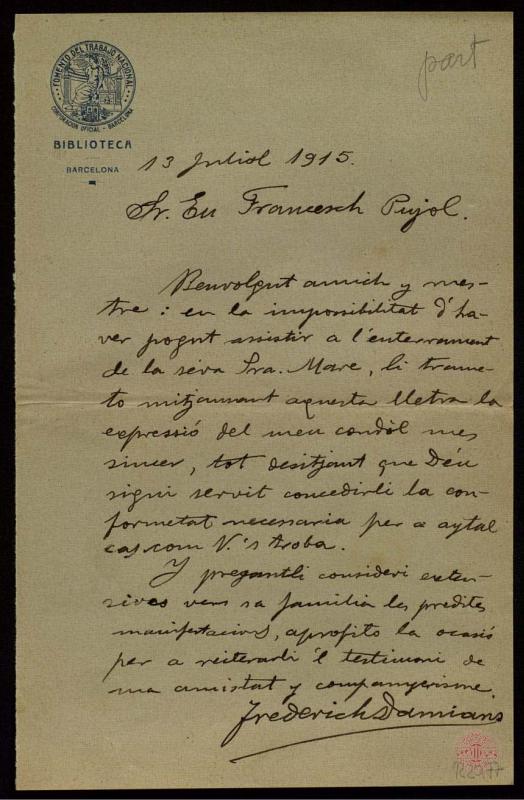 part
FOMENTO DEL TRABAJO NACIONAL
CORPORACIÓN OFICIAL - BARCELONA
BIBLIOTECA
BARCELONA
13 Juliol 1915.
Sr. En Francesch Pujol.
Benvolgut amich y mes-
tre: en la impossibilitat d'ha-
ver pogut assistir a l'enterrament
de la séva Sra. Mare, li trame-
to mitjansant aquesta lletra la
expressió del meu condol mes
sincer, tot desitjant que Déu
sigui servit concedirli la con-
formetat necessaria per a aytal
cas com V. 's troba.
Y pregantli consideri exten-
sives vers sa familia les predites
manifestacions, aprofito la ocasió
per a reiterarli 'l testimoni de
ma amistat y companyerisme.
Frederich Damians